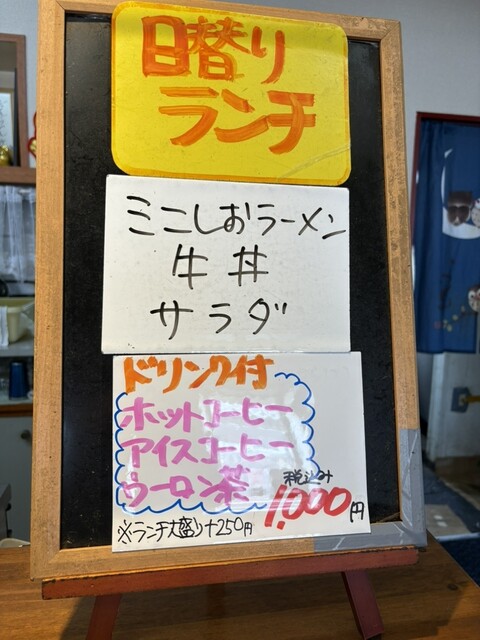 日替り
ランチ
ミニしおラーメン
牛丼
サラダ
ドリンク付
ホットコーヒー
アイスコーヒー
ウーロン茶
税込み
1,000円
※ランチ大盛り+250円